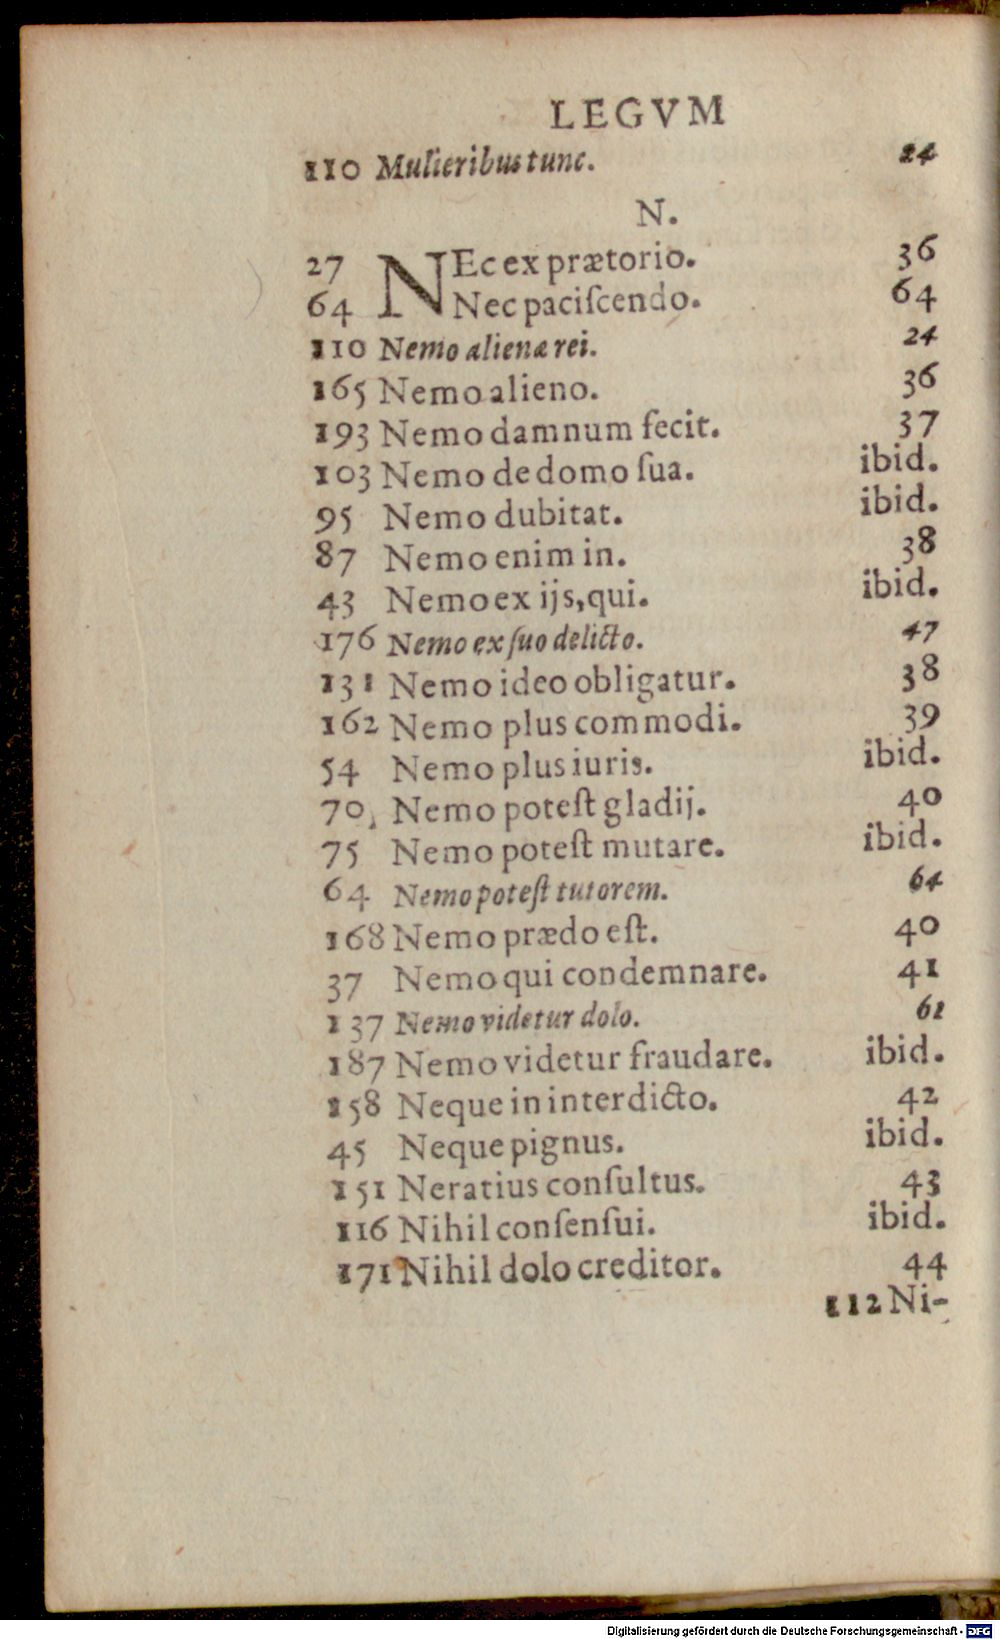 LEGVM
110 Mulieribus tunc. 24
N.
27 NEc ex prætorio. 36
64 Nec paciſcendo. 64
110 Nemo alienæ rei. 24
165 Nemo alieno. 36
193 Nemo damnum fecit. 37
103 Nemo de domo ſua. ibid.
95 Nemo dubitat. ibid.
87 Nemo enim in. 38
43 Nemo ex ijs, qui. ibid.
176 Nemo ex ſuo delicto. 47
131 Nemo ideo obligatur. 38
162 Nemo plus commodi. 39
54 Nemo plus iuris. ibid.
70 Nemo poteſt gladij. 40
75 Nemo poteſt mutare. ibid.
64 Nemo poteſt tutorem. 64
168 Nemo prædo eſt. 40
37 Nemo qui condemnare. 41
137 Nemo videtur dolo. 61
187 Nemo videtur fraudare. ibid.
158 Neque in interdicto. 42
45 Neque pignus. ibid.
151 Neratius conſultus. 43
116 Nihil conſenſui. ibid.
171 Nihil dolo creditor. 44
112 Ni-
Digitalisierung gefördert durch die Deutsche Forschungsgemeinschaft - DFG